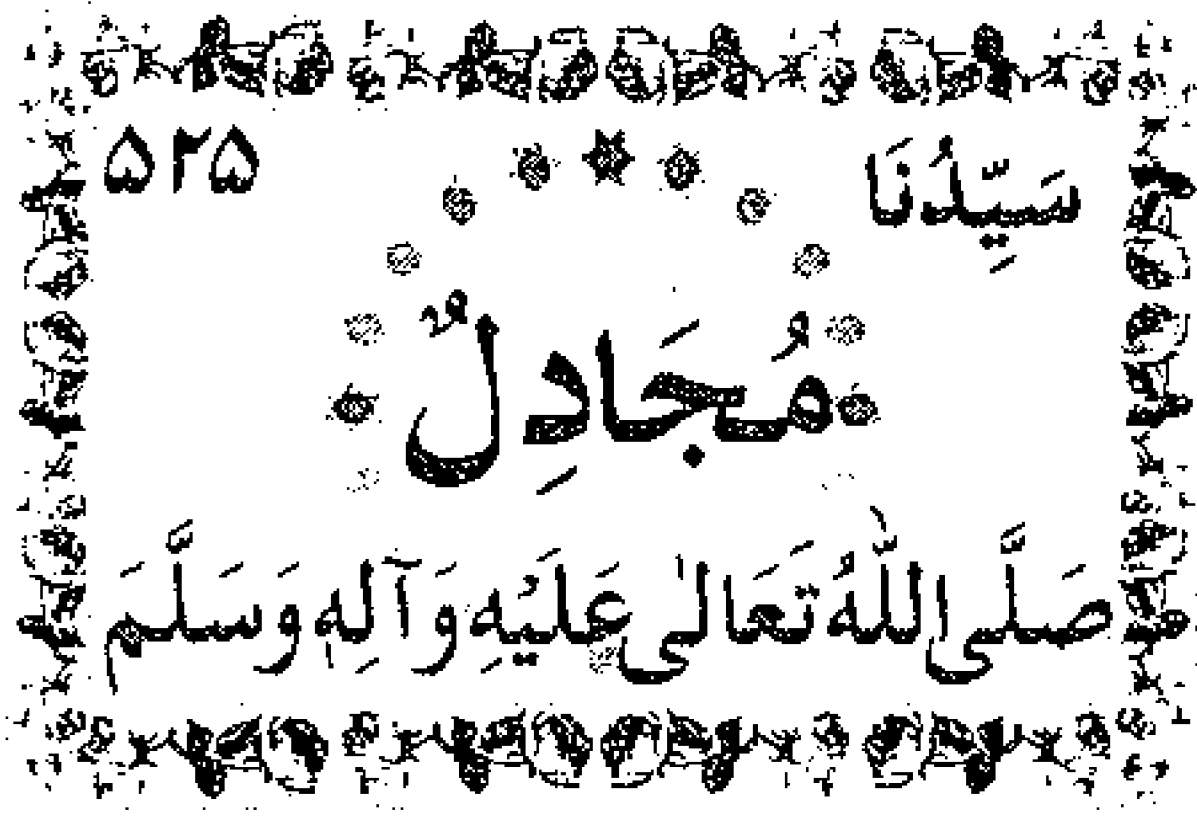 سَيِّدُنَا ۵۲۵
مُجَادِلٌ
صَلَّى اللّٰهُ تَعَالٰى عَلَيْهِ وَآلِهٖ وَسَلَّمَ